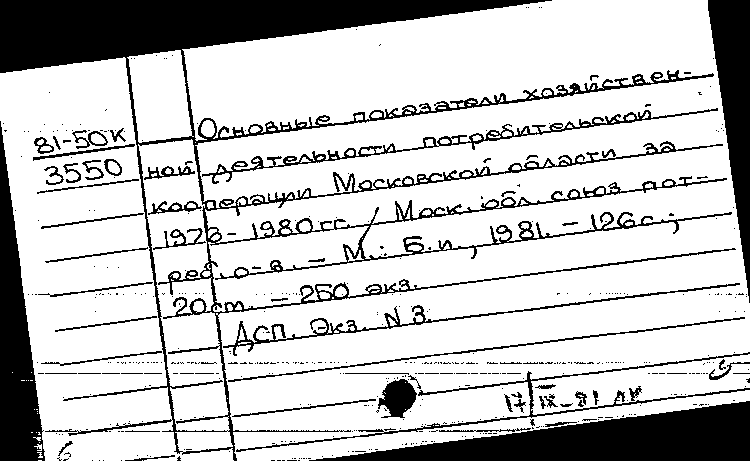 81-50к
3550
Основные показатели хозяйствен-
ной деятельности потребительской
кооперации Московской области за
1978-1980 гг. / Моск. обл. союз пот-
реб. о-в. – М.: Б.и., 1981. – 126 с.;
20 см. – 250 экз.
ДСП. Экз. N 3.
17/IX-81
6